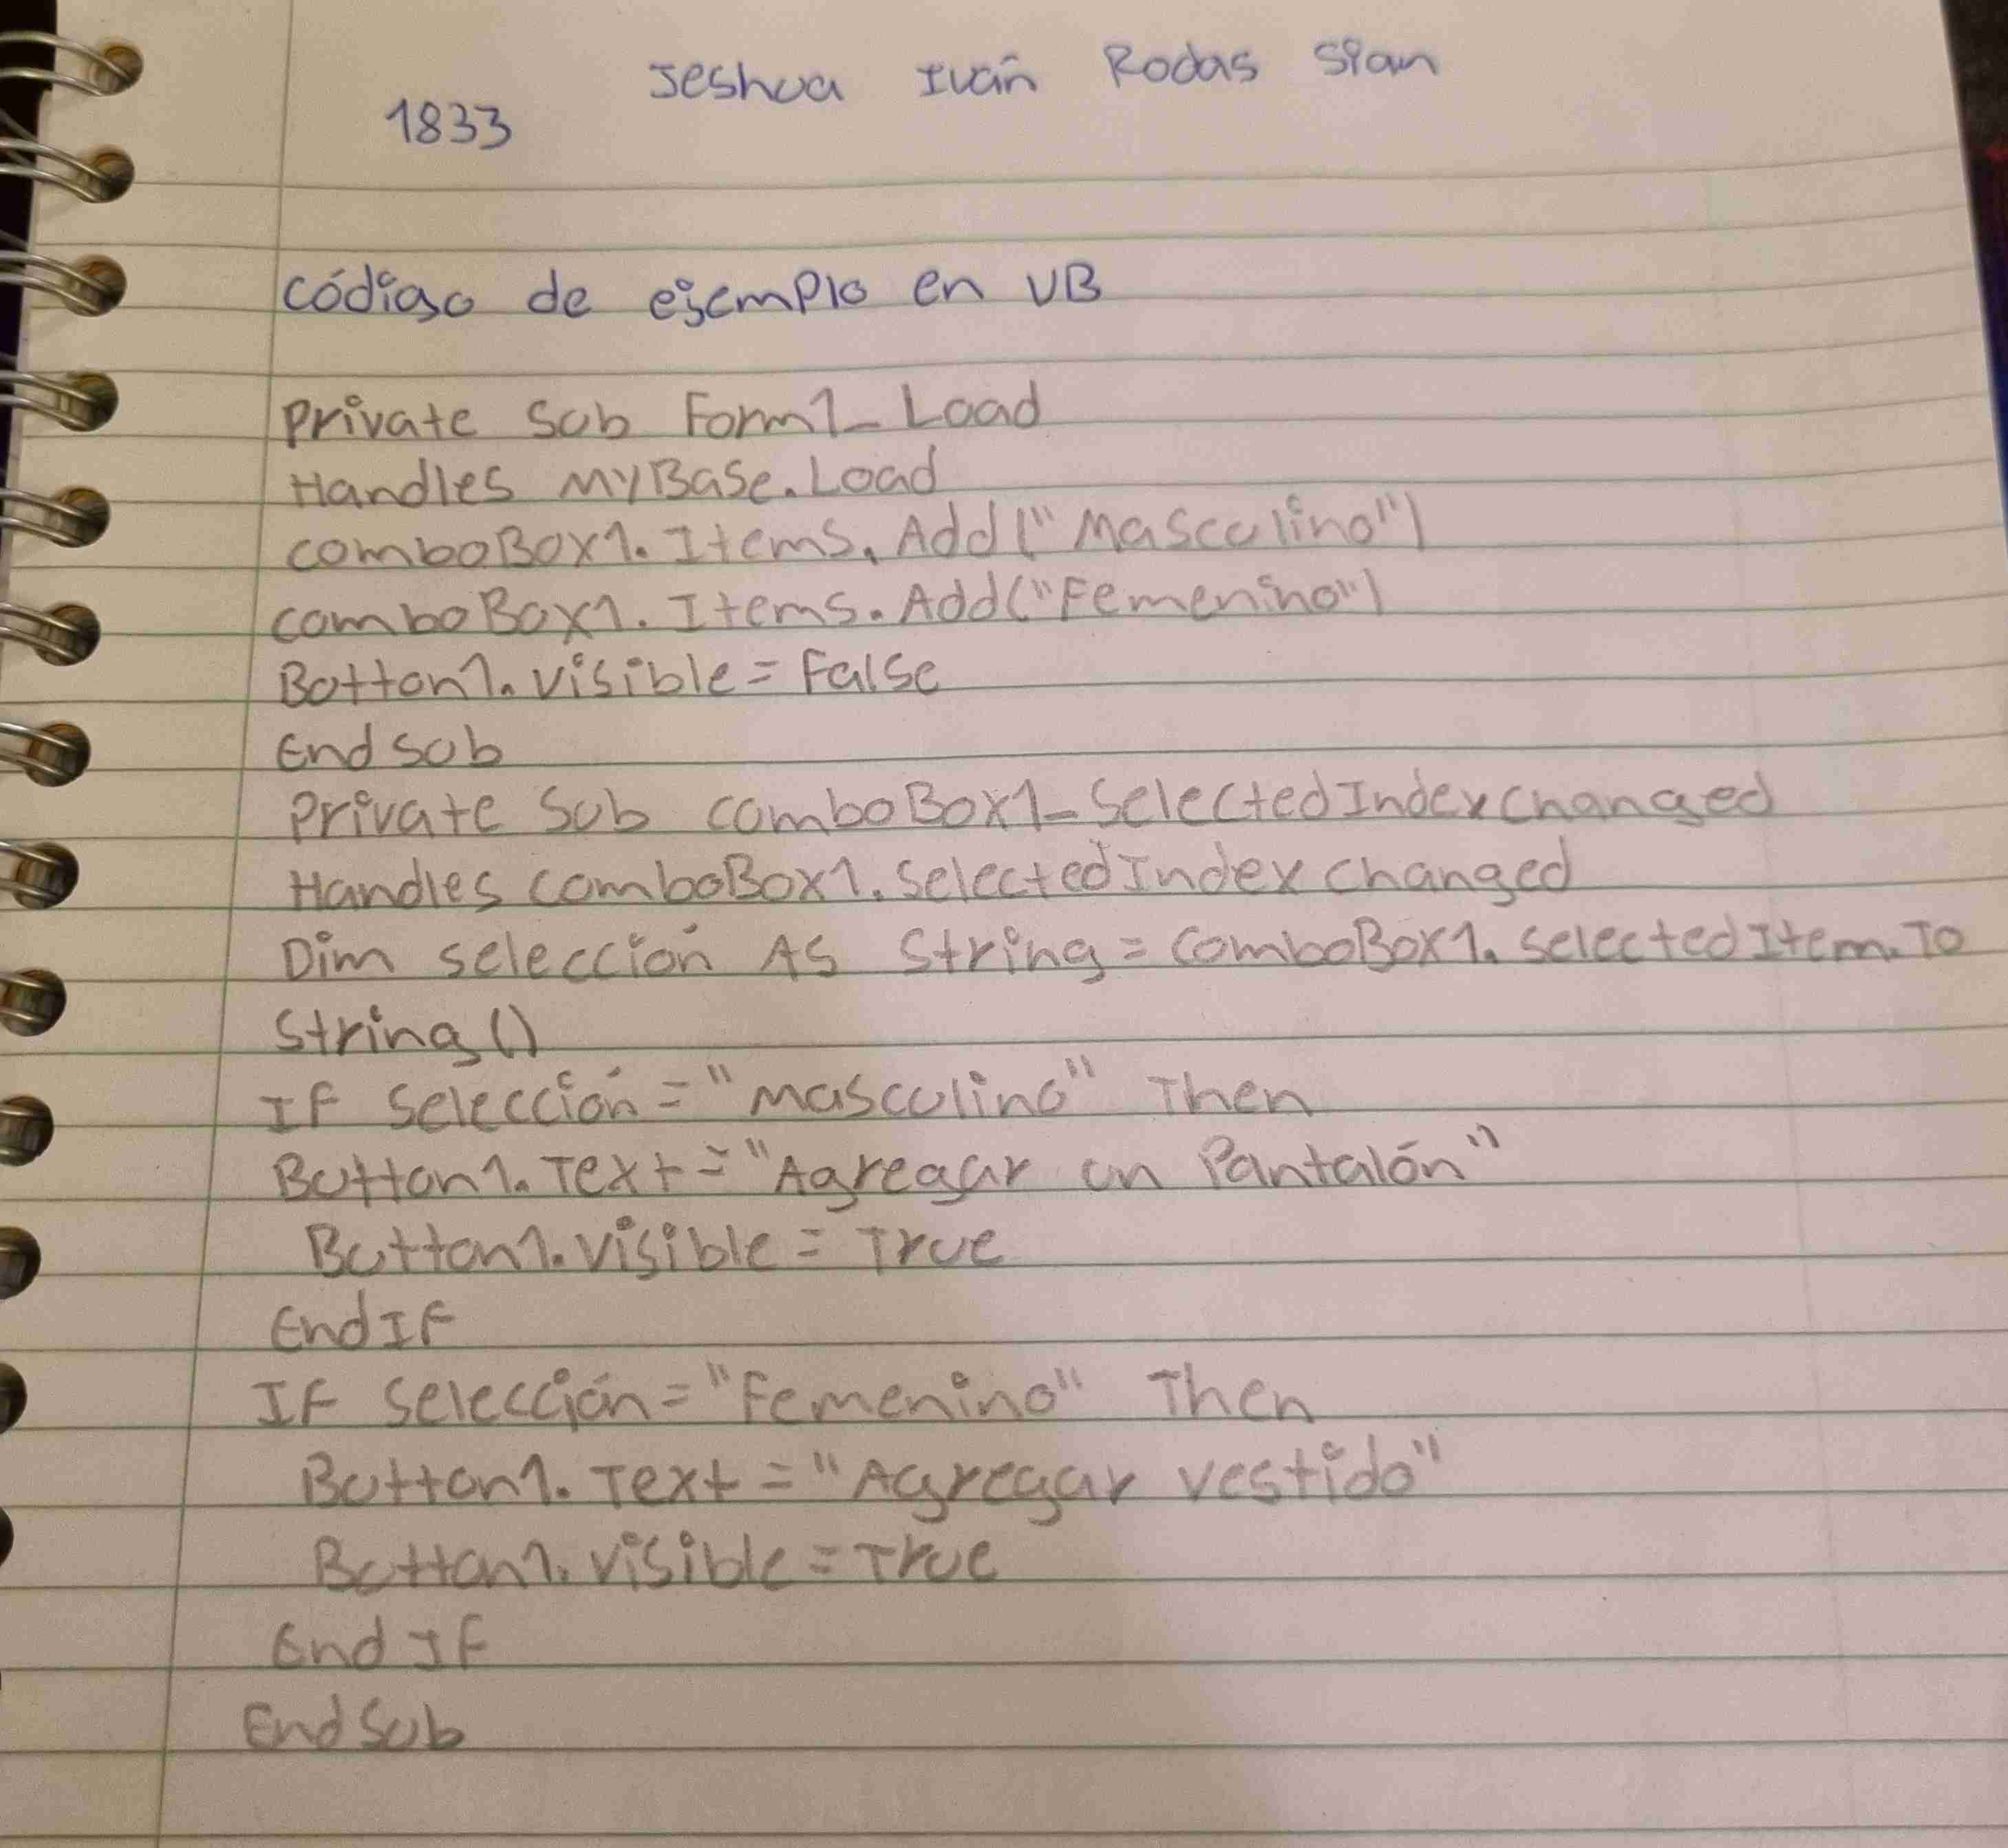 Jeshua Iván Rodas Sian
1833
Código de ejemplo en VB
Private Sub Form1_Load
Handles MyBase.Load
comboBox1.Items.Add("Masculino")
comboBox1.Items.Add("Femenino")
Button1.visible = False
End sub
Private Sub comboBox1_SelectedIndexchanged
Handles comboBox1.SelectedIndexchanged
Dim selección As String = comboBox1.selectedItem.To
String()
IF Selección = "masculino" Then
Button1.Text = "Agregar un Pantalón"
Button1.visible = True
End IF
IF Selección = "Femenino" Then
Button1.Text = "Agregar vestido"
Button1.visible = True
End IF
End Sub